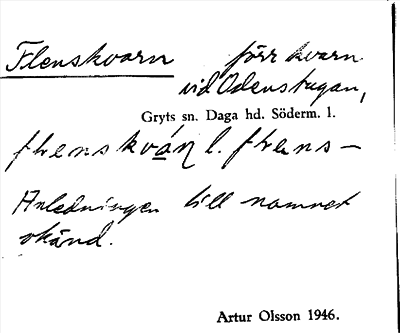 Flenskvarn förr kvarn
vid Odenstugan,
Gryts sn. Daga hd. Söderm. l.
flenskván l. flens–
Anledningen till namnet
okänd.
Artur Olsson 1946.